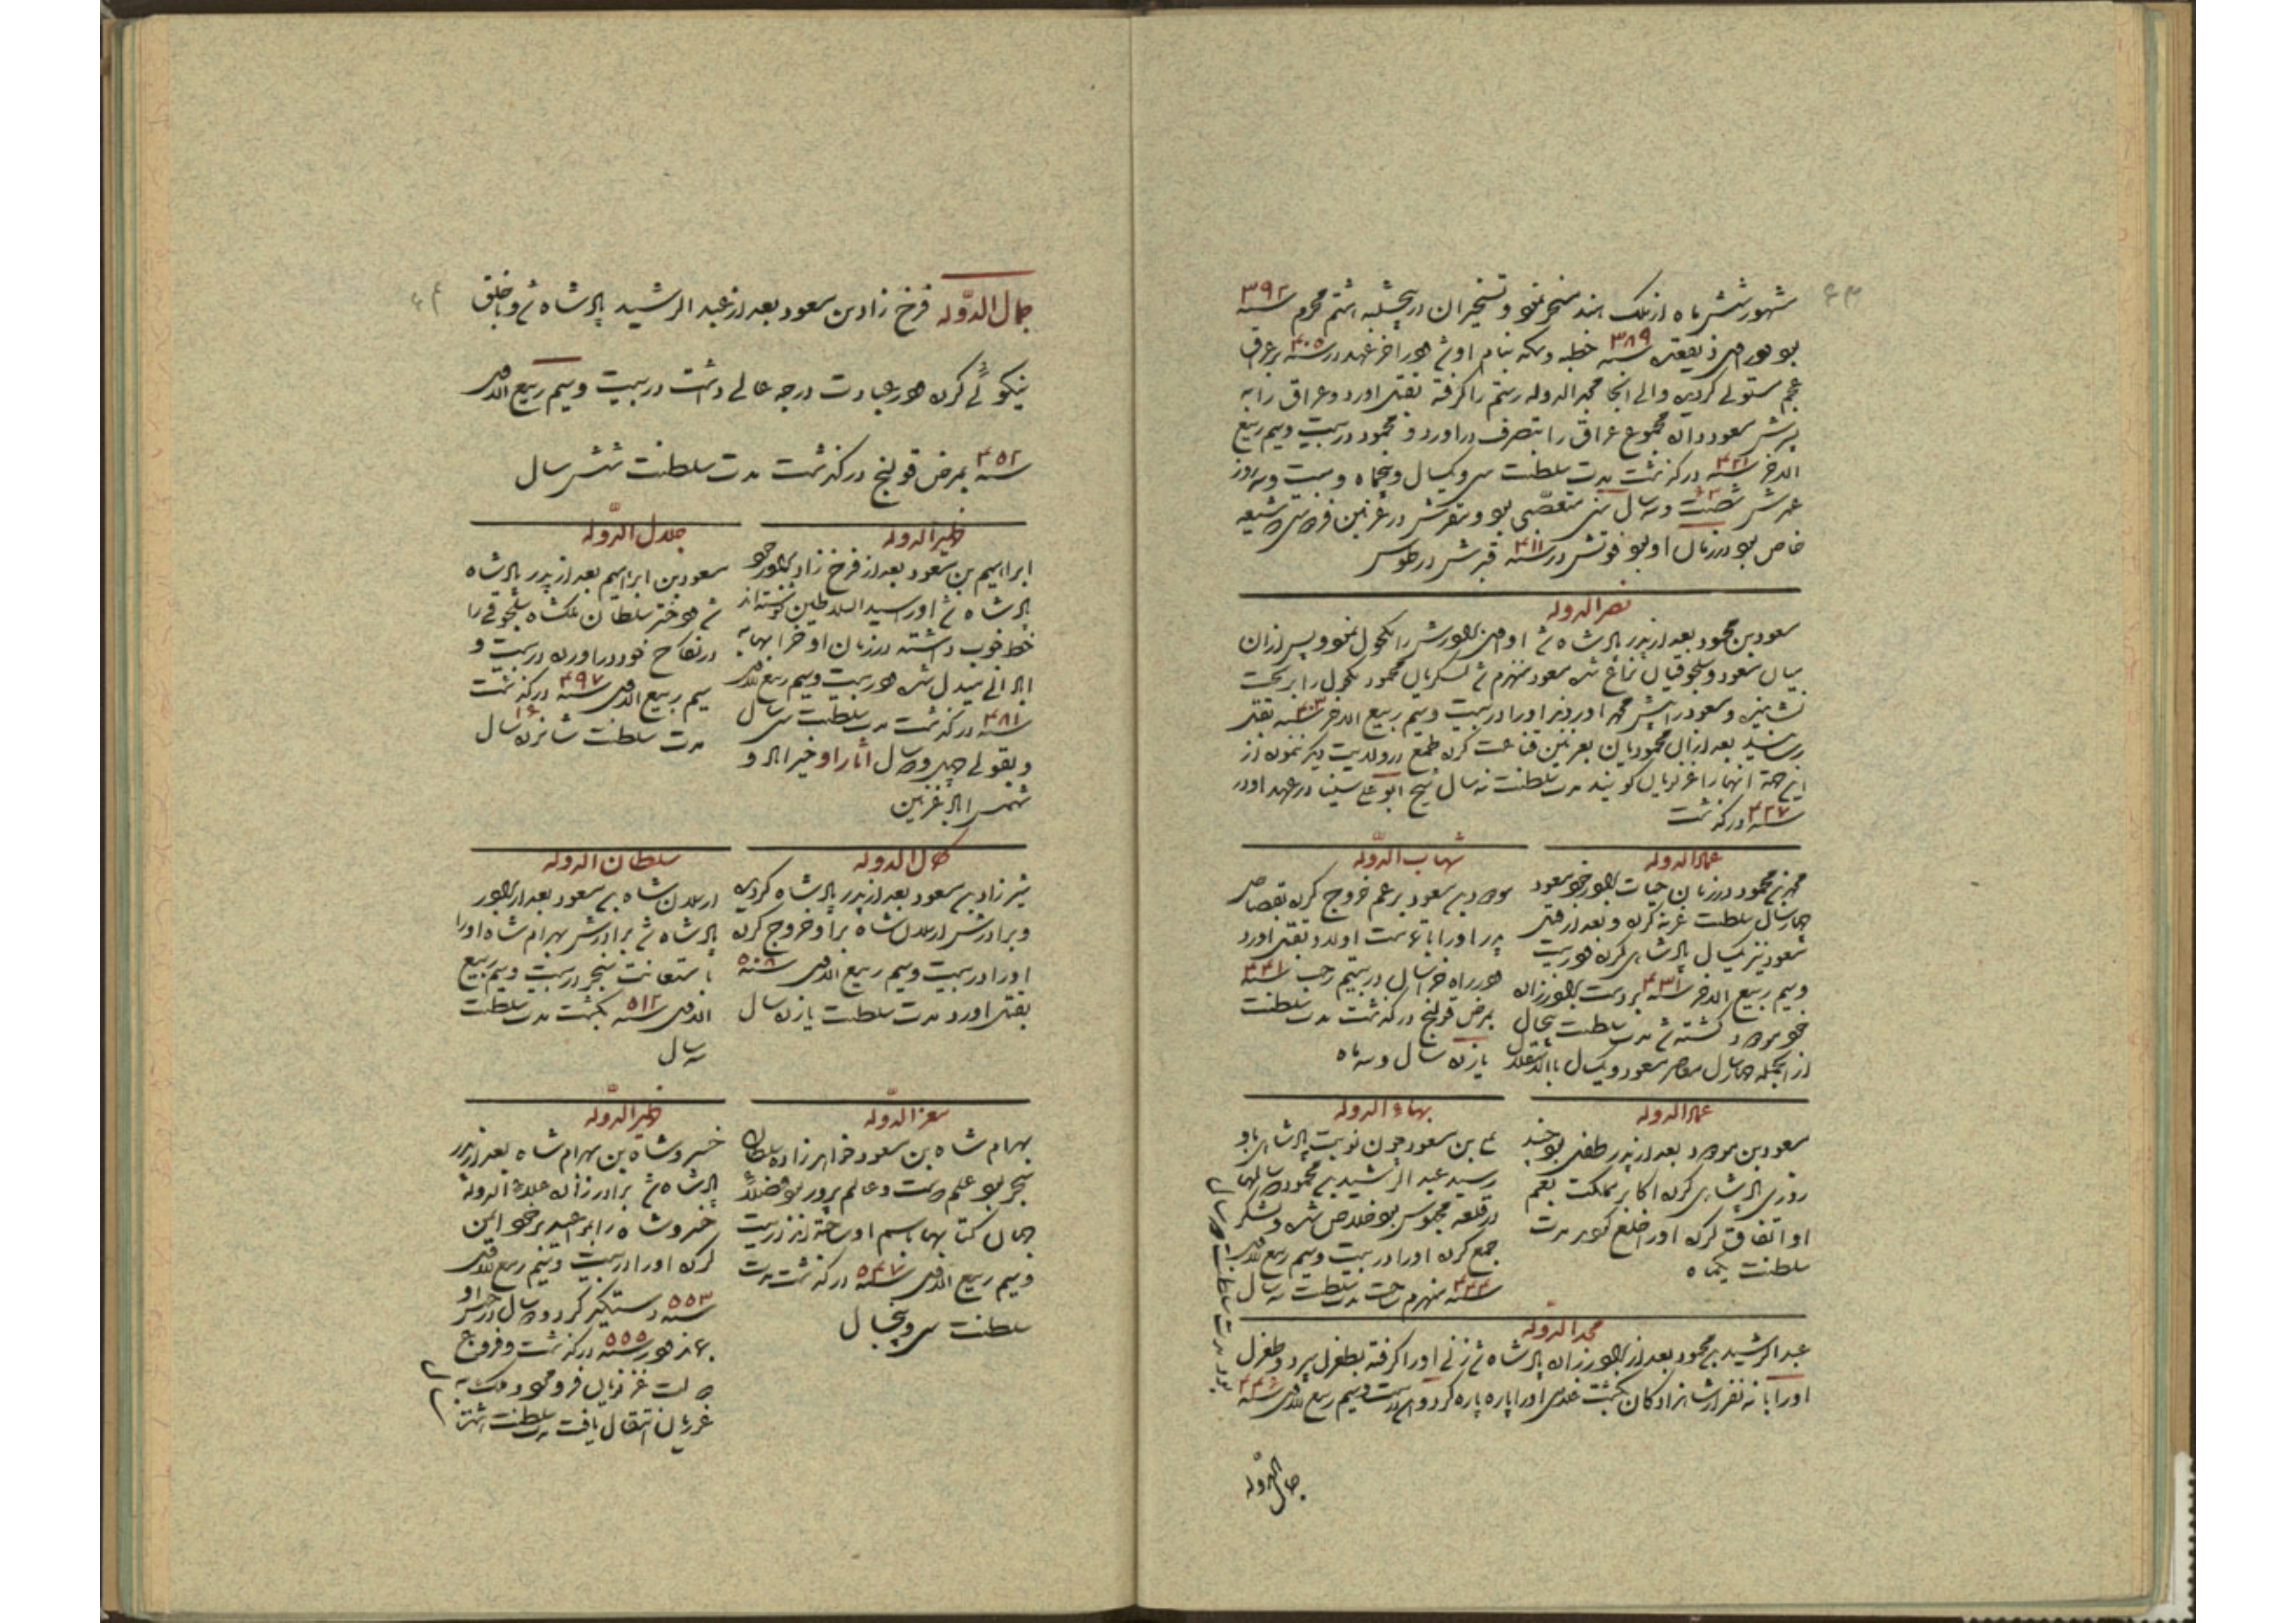 ۶۳
شهور شش ماه از ملک هند مسخر نمود و تسخیر ان در پنجشنبه هشتم محرم سنه ۳۹۲
بود در ذیقعده سنه ۳۸۹ خطبه و سکه بنام او شد در اخر عهد در سنه ۴۰۵ بر عراق
عجم مستولی گردیده والی انجا مجد الدوله رستم را گرفته بقتل اورد و عراق را به
پسرش مسعود داد مجموع عراق را بتصرف دراورد و محمود در بیست و سیم ربیع
الاخر سنه ۴۲۱ درگذشت مدت سلطنت سی و یکسال و پنجماه و بیست و سه روز
عمرش شصت و سه سال سنی متعصبی بود و مقرش در غزنین فردوسی شیعه
خاص بود در زمان او بود فوتش در سنه ۴۱۱ قبرش در طوس
نصر الدوله
مسعود بن محمود بعد از پدر پادشاه شد او برادرش را مکحول نمود و پس ازان
میان مسعود و سلجوقیان نزاع شده مسعود منهزم شد لشکریان محمود مکحول را بر تخت
نشانیده و مسعود را پسر محمد اورد نیز اورا در بیست و سیم ربیع الاخر سنه بقتل
رسانید بعد ازان محمودیان بغزنین قناعت کرده طمع در ولایت دیگر ننموده از
این جهة انها را غزنویان گویند مدت سلطنت نه سال شیخ ابو علی سینا در عهد او در
سنه ۴۲۷ درگذشت
عماد الدوله
محمد بن محمود در زمان حیات برادر خود مسعود
چهار سال سلطنت غزنه کرده و بعد از قتل
مسعود نیز یکسال پادشاهی کرده در بیست
و سیم ربیع الاخر سنه ۴۳۱ بر دست برادرزاده
خود مودود کشته شد مدت سلطنت پنجسال
از انجمله چهار سال معاصر مسعود و یکسال بالاستقلال
شهاب الدوله
مودود بن مسعود بر عم خروج کرده بقصاص
پدر اورا با تمامت اولاد بقتل اورد
در راه خراسان در بیستم رجب سنه ۴۴۱
بمرض قولنج درگذشت مدت سلطنت
یازده سال و سه ماه
عماد الدوله
مسعود بن مودود بعد از پدر طفلی بود چند
روزی پادشاهی کرده اکابر مملکت بعم
او اتفاق کرده اورا خلع کردند مدت
سلطنت یکماه
بهاء الدوله
علی بن مسعود چون نوبت پادشاهی باو
رسید عبد الرشید بن محمود که سالها
در قلعه محبوس بود خلاص شده و لشکر
جمع کرده اورا در بیست و سیم ربیع الاول
سنه منهزم ساخت مدت سلطنت سه سال
مجد الدوله
عبد الرشید بن محمود بعد از برادرزاده پادشاه شد زنی اورا گرفته بطغرل سپرد و طغرل
اورا با نه نفر از شاهزادگان بکشت اورا پاره پاره کردند در بیست و سیم ربیع الاول سنه
بود مدت سلطنت سال
جمال الدوله
۶۴
جمال الدوله فرخ زاد بن مسعود بعد از عبد الرشید پادشاه شد و با خلق
نیکوئی کرده در عبادت درجه عالی داشت در بیست و سیم ربیع الاول
سنه ۴۵۲ بمرض قولنج درگذشت مدت سلطنت شش سال
ظهیر الدوله
ابراهیم بن مسعود بعد از فرخ زاد برادر خود
پادشاه شد اورا سید السلاطین نوشته اند
خط خوب داشته در زمان او خرابیها به
ابادانی مبدل شده در بیست و سیم ربیع الاول
سنه ۴۸۱ درگذشت مدت سلطنت سی سال
و بقولی چهل و دو سال اثار او خیر اباد و
اباد غزنین
جلال الدوله
مسعود بن ابراهیم بعد از پدر پادشاه
شد دختر سلطان ملکشاه سلجوقی را
در نکاح خود دراورده در بیست و
سیم ربیع الاول سنه ۴۹۷ درگذشت
مدت سلطنت شانزده سال ۱۶
کمال الدوله
شیرزاد بن مسعود بعد از پدر پادشاه گردیده
و برادرش ارسلان شاه بر او خروج کرده
اورا در بیست و سیم ربیع الاول سنه ۵۰۸
بقتل اورد مدت سلطنت یازده سال
سلطان الدوله
ارسلان شاه بن مسعود بعد از برادر
پادشاه شد برادرش بهرام شاه اورا
باستعانت سنجر در بیست و سیم ربیع
الاول سنه ۵۱۲ بکشت مدت سلطنت
سه سال
معز الدوله
بهرام شاه بن مسعود خواهرزاده سلطان
سنجر بود علم دوست و عالم پرور بود فضلای
جهان کتابها باسم او ساخته اند در بیست
و سیم ربیع الاول سنه ۵۴۷ درگذشت مدت
سلطنت سی و پنجسال
ظهیر الدوله
خسرو شاه بن بهرام شاه بعد از پدر
پادشاه شد برادرزاده علاء الدوله
خسرو شاه را بر عهد بر خود ایمن
کرده اورا در بیست و سیم ربیع الاول
سنه ۵۵۳ دستگیر کرد دو سال در حبس او
بماند در سنه ۵۵۵ درگذشت و فروغ
دولت غزنویان فرو و ملک به
غوریان انتقال یافت مدت سلطنت هشت